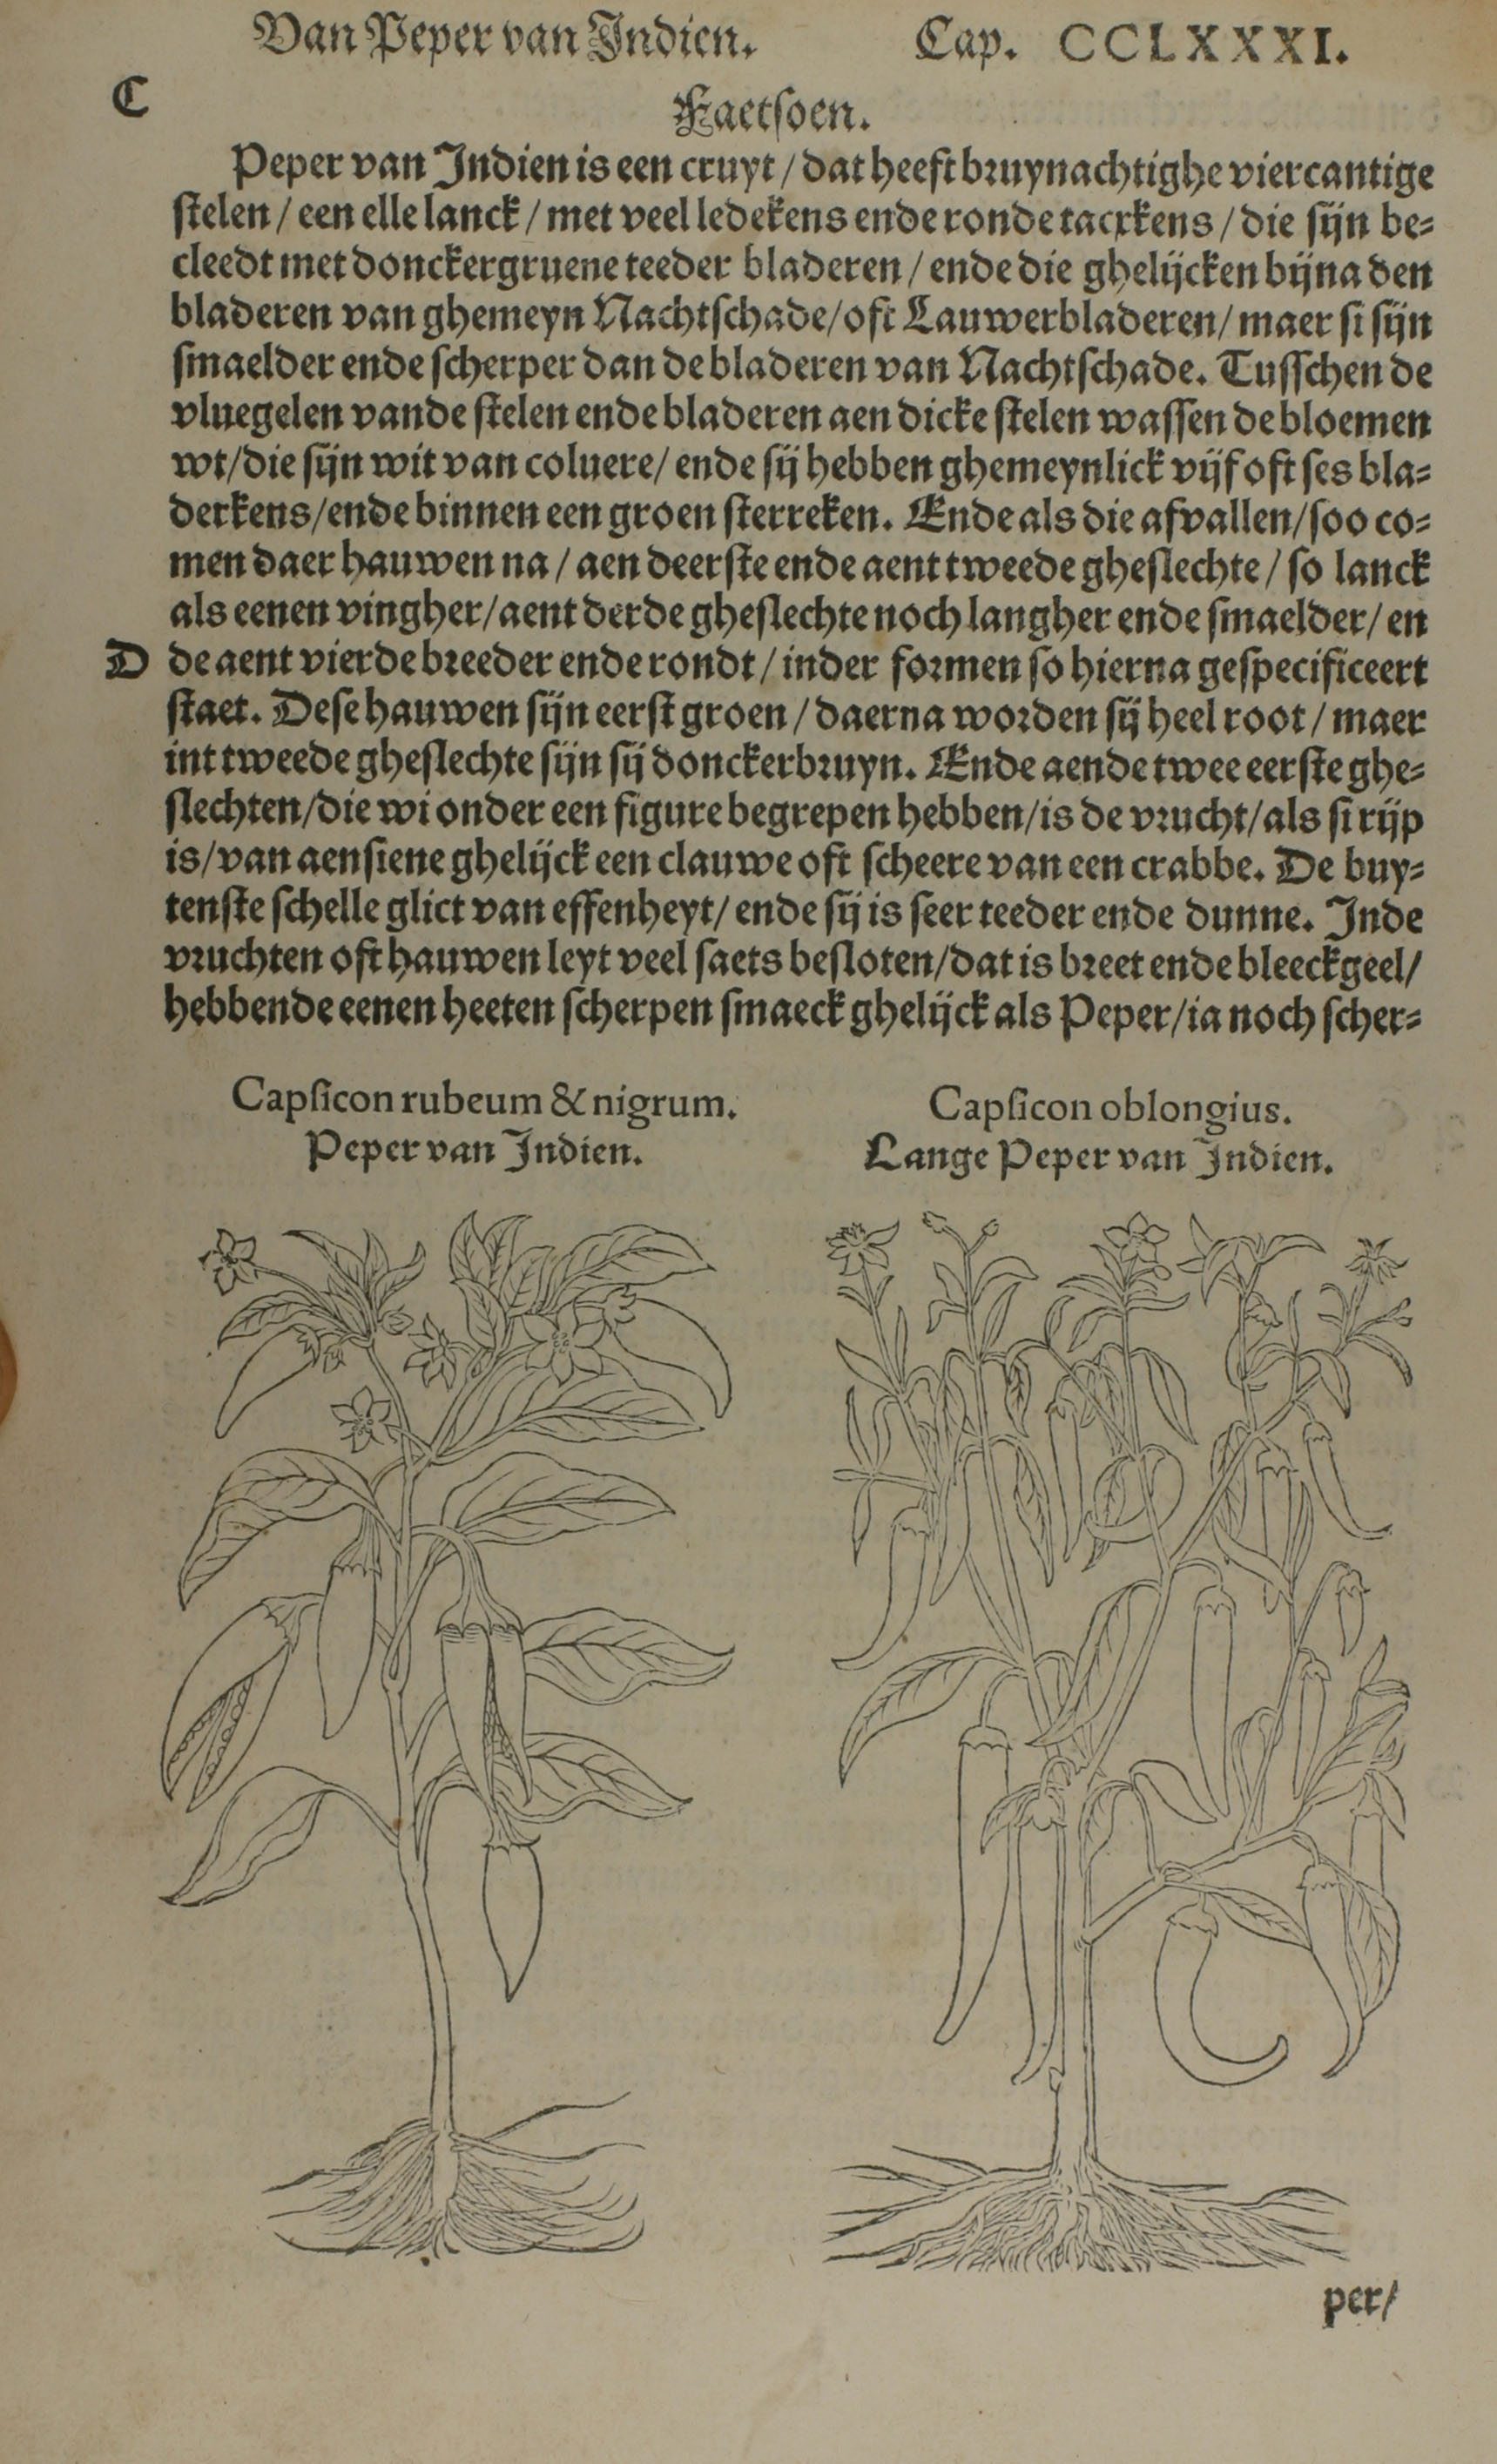 Van Peper van Indien. Cap. CCLXXXI.
C
Faetsoen.
Peper van Indien is een cruyt / dat heeft bruynachtighe viercantige
stelen / een elle lanck / met veel ledekens ende ronde tacxkens / die sijn be-
cleedt met donckergruene teeder bladeren / ende die ghelijcken bijna den
bladeren van ghemeyn Nachtschade/oft Lauwerbladeren/ maer si sijn
smaelder ende scherper dan de bladeren van Nachtschade. Tusschen de
vluegelen vande stelen ende bladeren aen dicke stelen wassen de bloemen
wt/die sijn wit van coluere/ ende sij hebben ghemeynlick vijf oft ses bla-
derkens/ende binnen een groen sterreken. Ende als die afvallen/soo co-
men daer hauwen na / aen deerste ende aent tweede gheslechte / so lanck
als eenen vingher/aent derde gheslechte noch langher ende smaelder/ en
D de aent vierde breeder ende rondt / in der formen so hierna gespecificeert
staet. Dese hauwen sijn eerst groen / daerna worden sij heel root / maer
int tweede gheslechte sijn sij donckerbruyn. Ende aende twee eerste ghe-
slechten/die wi onder een figure begrepen hebben/is de vrucht/als si rijp
is/van aensiene ghelijck een clauwe oft scheere van een crabbe. De buy-
tenste schelle glict van effenheyt/ ende sij is seer teeder ende dunne. Inde
vruchten oft hauwen leyt veel saets besloten/dat is breet ende bleeckgeel/
hebbende eenen heeten scherpen smaeck ghelijck als Peper/ia noch scher-
Capsicon rubeum & nigrum.
Peper van Indien.
Capsicon oblongius.
Lange Peper van Indien.
per/